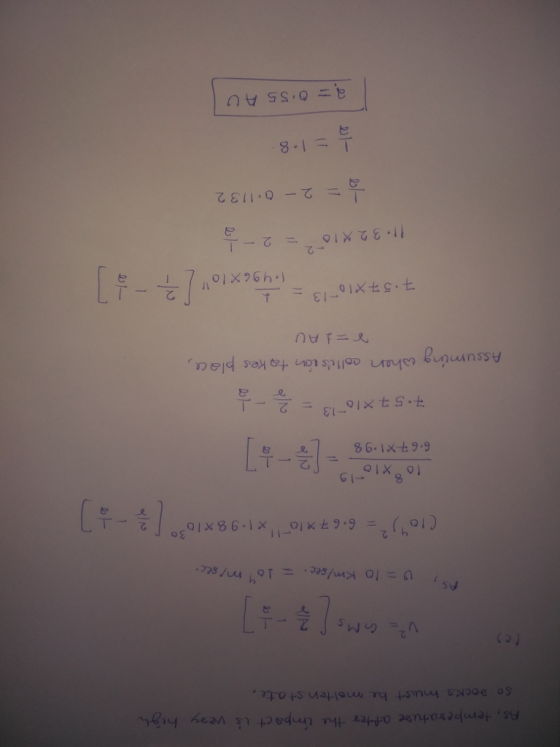 As, temperature after the impact is very high.
so rocks must be molten state.
(c)
v² = GMs [2/r - 1/a]
As, v = 10 km/sec. = 10⁴ m/sec.
(10⁴)² = 6.67×10⁻¹¹ × 1.98×10³⁰ [2/r - 1/a]
10⁸ × 10⁻¹⁹ / 6.67×1.98 = [2/r - 1/a]
7.57×10⁻¹³ = 2/r - 1/a
Assuming when collision takes place,
r = 1 AU
7.57×10⁻¹³ = 1/1.496×10¹¹ [2/1 - 1/a]
11.32×10⁻² = 2 - 1/a
1/a = 2 - 0.1132
1/a = 1.8
a = 0.55 AU